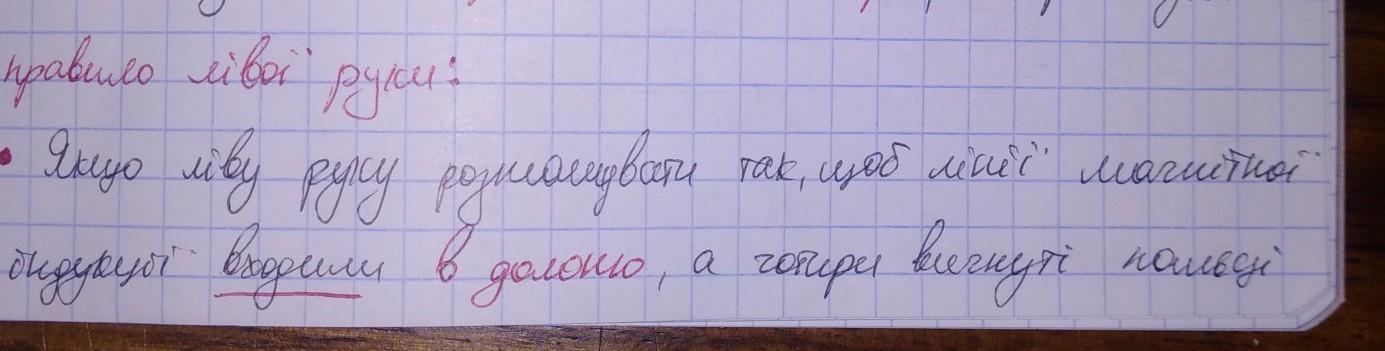 правило лівої руки:
• Якщо ліву руку розташувати так, щоб лінії магнітної
індукції входили в долоню, а чотири витягнуті пальці